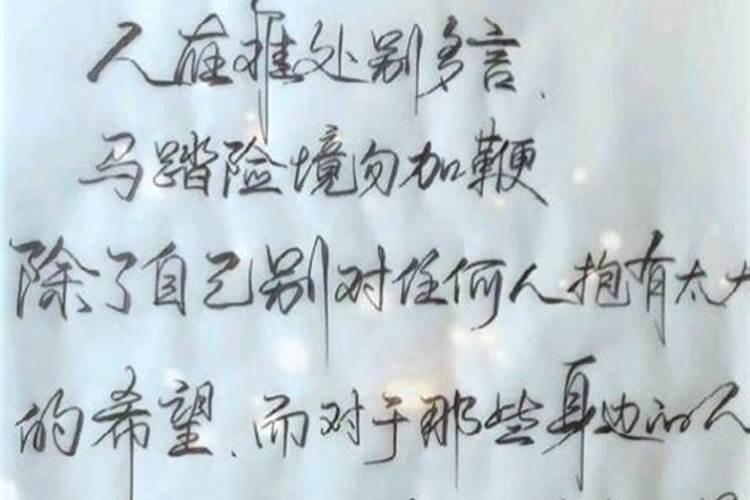 人在难处别多言、
马踏险境勿加鞭
除了自己别对任何人抱有太大
的希望、而对于那些身边的人